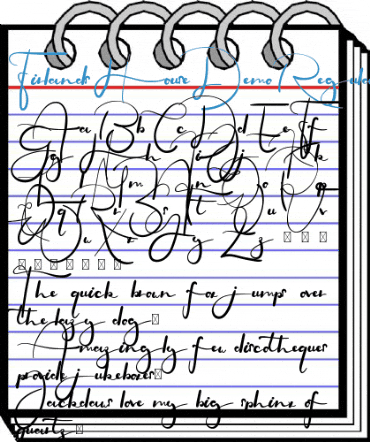 Finlands House Demo Regula
Aa Bb Cc Dd Ee Ff
Gg Hh Ii Jj Kk
Ll Mm Nn Oo Pp
Qq Rr Ss Tt Uu Vv
Ww Xx Yy Zz
The quick brown fox jumps over
the lazy dog
Amazingly few discotheques
provide jukeboxes
Jackdaws love my big sphinx of
quartz